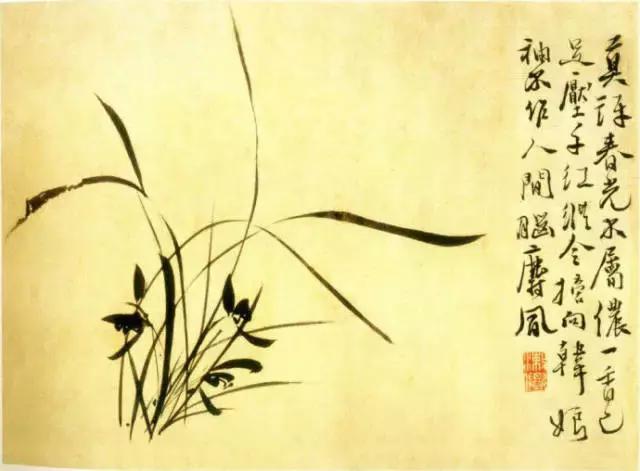 莫訝春光不屬儂一香已
足壓千紅令摘向韓娘
袖不作人間腦麝風